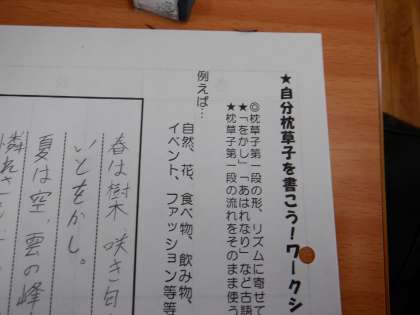 ★自分枕草子を書こう!ワークシ
◎枕草子第一段の形、リズムに寄せて
★「をかし」「あはれなり」など古語
★枕草子第一段の流れをそのまま使う
例えば…
自然、花、食べ物、飲み物、
イベント、ファッション等等
春は樹木 咲き
いとをかし。
夏は空、雲の峰